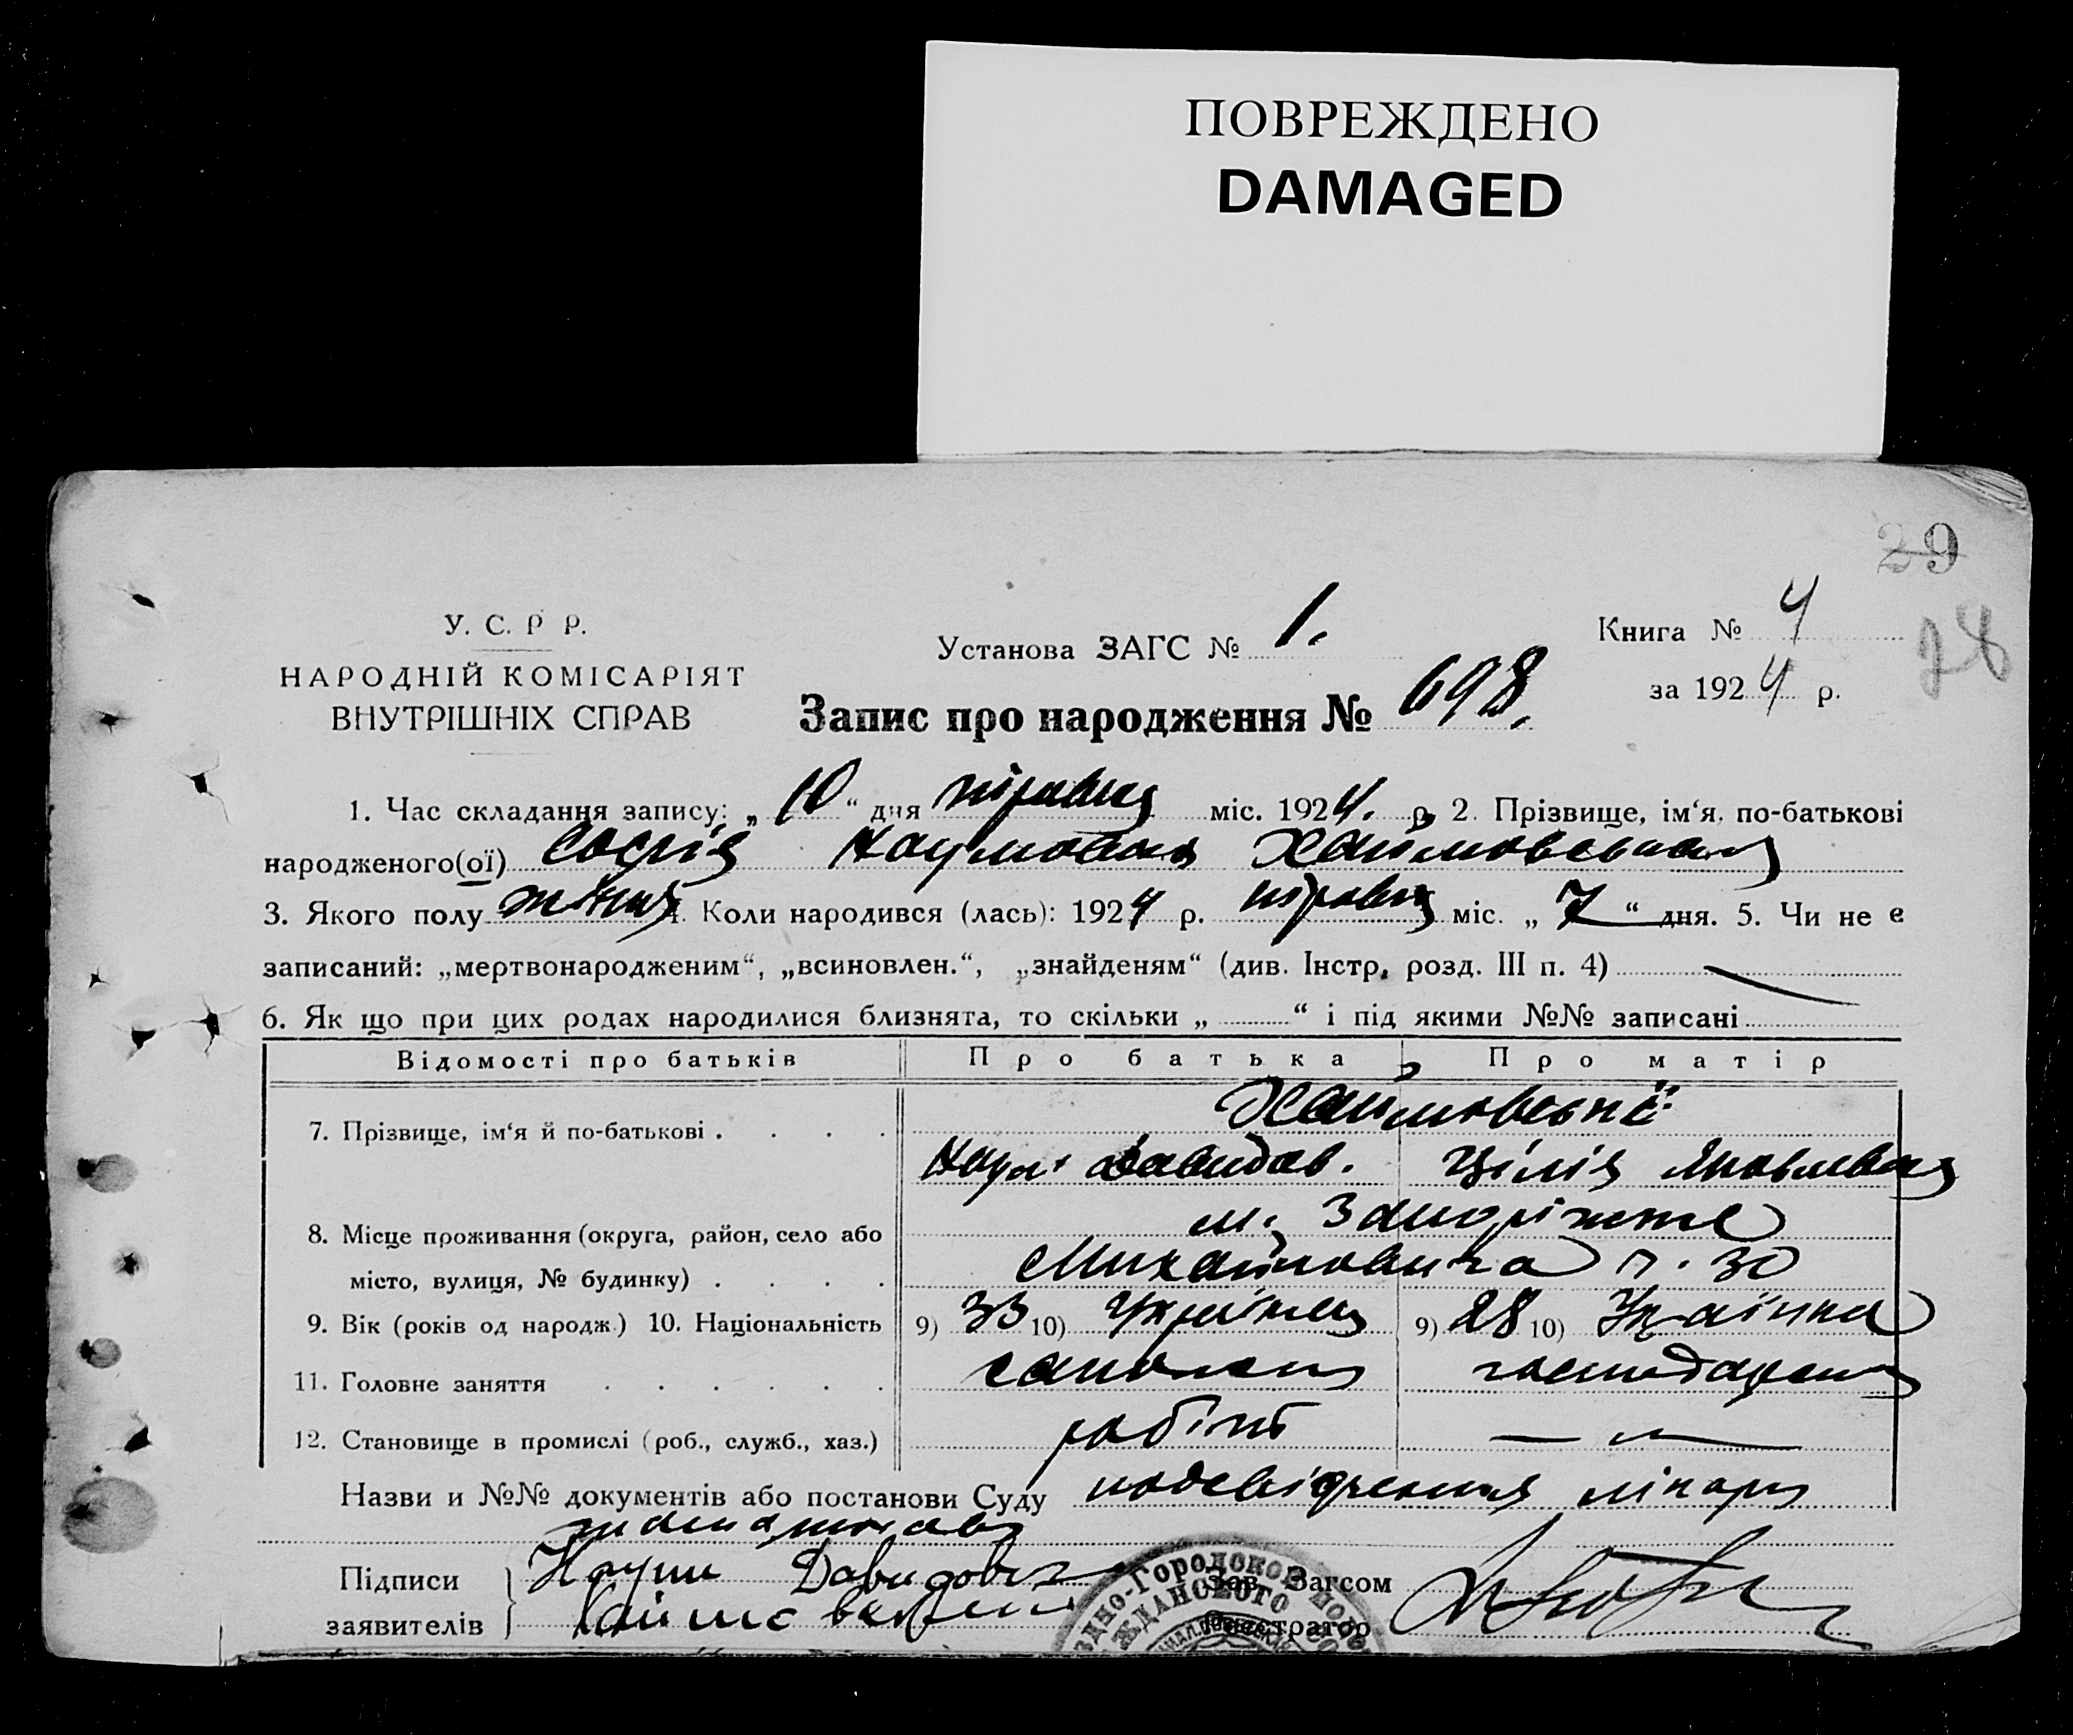 ПОВРЕЖДЕНО
DAMAGED
29
У. С. Р Р.
НАРОДНІЙ КОМІСАРІЯТ
ВНУТРІШНІХ СПРАВ
Установа ЗАГС № 1.
Книга № 4
за 1924 р.
28
Запис про народження № 698.
1. Час складання запису: „10“ дня травня міс. 1924. р. 2. Прізвище, ім‘я, по-батькові
народженого(ої) Софія Наумовна Хаймовська
3. Якого полу жіноч 4. Коли народився (лась): 1924 р. травня міс. „7“ дня. 5. Чи не є
записаний: „мертвонародженим“, „всиновлен.“, „знайденям“ (див. Інстр. розд. III п. 4)
6. Як що при цих родах народилися близнята, то скільки „ “ і під якими №№ записані
Відомості про батьків Про батька Про матір
7. Прізвище, ім‘я й по-батькові . . . . Хаймовські
Наум Давидов. Цілія Яковлевна
8. Місце проживання (округа, район, село або м. Запоріжжє
місто, вулиця, № будинку) . . . . 30
9. Вік (років од народж.) 10. Національність 9) 33 10) Українец 9) 28 10) Українка
11. Головне заняття . . . . . .
12. Становище в промислі (роб., служб., хаз.) робітн — „ —
Назви и №№ документів або постанови Суду посвідчення лікаря
Підписи Наум Давидович
заявителів
Зав. Загсом
Реєстратор